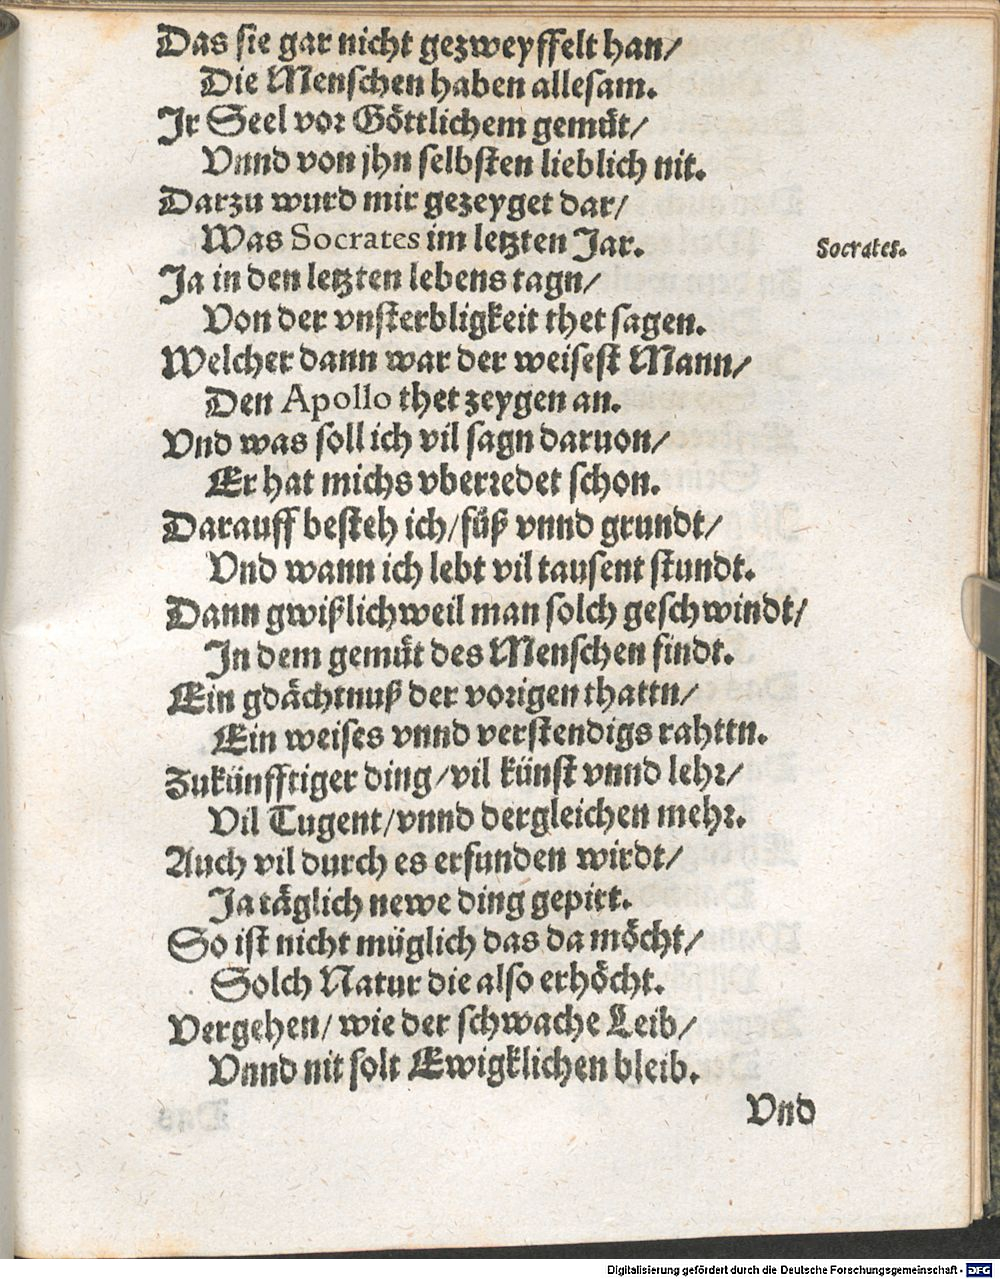 Das sie gar nicht gezweyffelt han/
Die Menschen haben allesam.
Jr Seel vor Göttlichem gemüt/
Vnnd von jhn selbsten lieblich nit.
Darzu wurd mir gezeyget dar/
Was Socrates im letzten Jar.
Socrates.
Ja in den letzten lebens tagn/
Von der vnsterbligkeit thet sagen.
Welcher dann war der weisest Mann/
Den Apollo thet zeygen an.
Vnd was soll ich vil sagn daruon/
Er hat michs vberredet schon.
Darauff besteh ich/füß vnnd grundt/
Vnd wann ich lebt vil tausent stundt.
Dann gwißlich weil man solch geschwindt/
In dem gemüt des Menschen findt.
Ein gdächtnuß der vorigen thattn/
Ein weises vnnd verstendigs rahttn.
Zukünfftiger ding/vil künst vnnd lehr/
Vil Tugent/vnnd dergleichen mehr.
Auch vil durch es erfunden wirdt/
Ja täglich newe ding gepirt.
So ist nicht müglich das da möcht/
Solch Natur die also erhöcht.
Vergehen/ wie der schwache Leib/
Vnnd nit solt Ewigklichen bleib.
Vnd
Digitalisierung gefördert durch die Deutsche Forschungsgemeinschaft - DFG